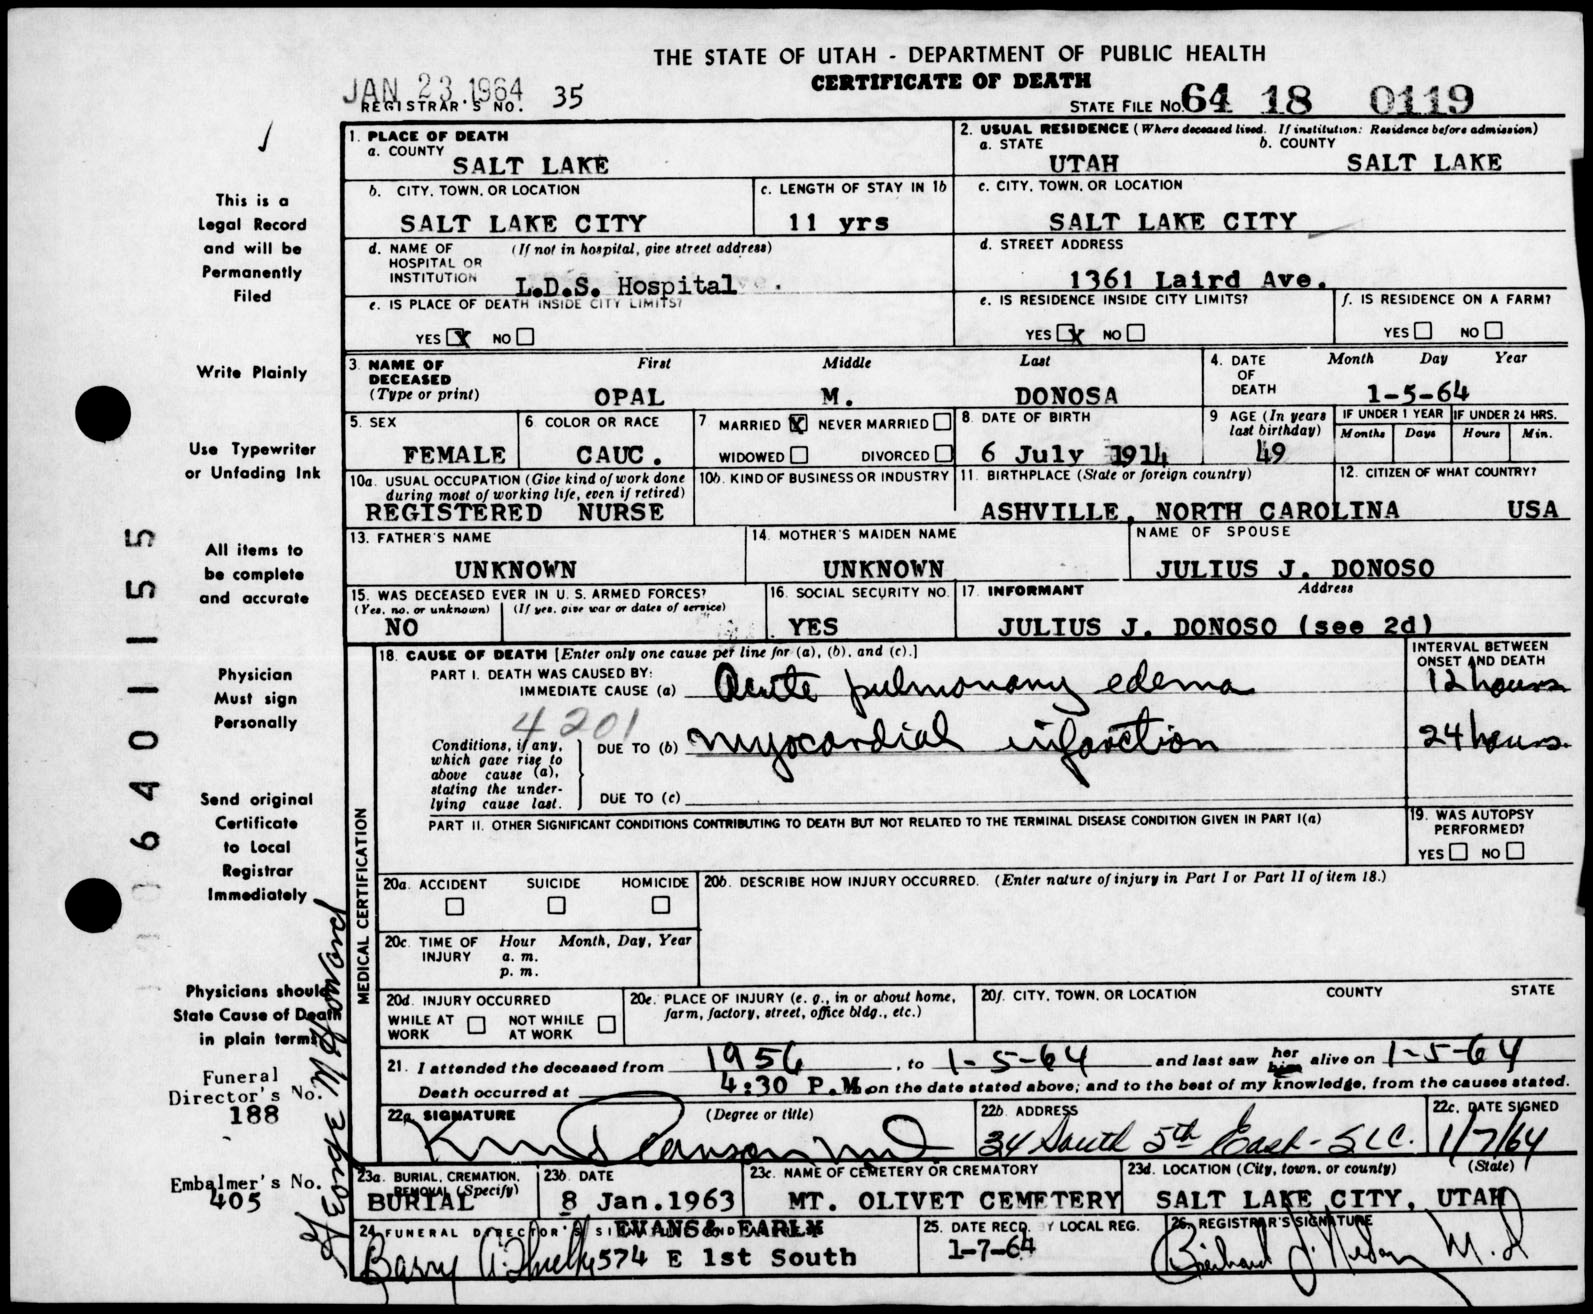 THE STATE OF UTAH - DEPARTMENT OF PUBLIC HEALTH
CERTIFICATE OF DEATH
JAN 23.1964
REGISTRAR'S NO. 35
STATE FILE No. 64 18 0119
This is a
Legal Record
and will be
Permanently
Filed
Write Plainly
Use Typewriter
or Unfading Ink
All items to
be complete
and accurate
Physician
Must sign
Personally
Send original
Certificate
to Local
Registrar
Immediately
Physicians should
State Cause of Death
in plain terms
Funeral
Director's No.
188
Embalmer's No.
405
6401155
1. PLACE OF DEATH
a. COUNTY
SALT LAKE
2. USUAL RESIDENCE (Where deceased lived. If institution: Residence before admission)
a. STATE b. COUNTY
UTAH SALT LAKE
b. CITY, TOWN, OR LOCATION
SALT LAKE CITY
c. LENGTH OF STAY IN 1b
11 yrs
c. CITY, TOWN, OR LOCATION
SALT LAKE CITY
d. NAME OF (If not in hospital, give street address)
HOSPITAL OR
INSTITUTION L.D.S. Hospital
d. STREET ADDRESS
1361 Laird Ave.
e. IS PLACE OF DEATH INSIDE CITY LIMITS?
YES X NO
e. IS RESIDENCE INSIDE CITY LIMITS?
YES X NO
f. IS RESIDENCE ON A FARM?
YES NO
3. NAME OF First Middle Last
DECEASED
(Type or print) OPAL M. DONOSA
4. DATE Month Day Year
OF
DEATH 1-5-64
5. SEX
FEMALE
6. COLOR OR RACE
CAUC.
7 MARRIED X NEVER MARRIED
WIDOWED DIVORCED
8. DATE OF BIRTH
6 July 1914
9 AGE (In years
last birthday)
49
IF UNDER 1 YEAR IF UNDER 24 HRS.
Months Days Hours Min.
10a. USUAL OCCUPATION (Give kind of work done
during most of working life, even if retired)
REGISTERED NURSE
10b. KIND OF BUSINESS OR INDUSTRY
11. BIRTHPLACE (State or foreign country)
ASHVILLE, NORTH CAROLINA
12. CITIZEN OF WHAT COUNTRY?
USA
13. FATHER'S NAME
UNKNOWN
14. MOTHER'S MAIDEN NAME
UNKNOWN
NAME OF SPOUSE
JULIUS J. DONOSO
15. WAS DECEASED EVER IN U.S. ARMED FORCES?
(Yes, no, or unknown) (If yes, give war or dates of service)
NO
16. SOCIAL SECURITY NO.
YES
17. INFORMANT Address
JULIUS J. DONOSO (see 2d)
MEDICAL CERTIFICATION
18. CAUSE OF DEATH [Enter only one cause per line for (a), (b), and (c).]
INTERVAL BETWEEN
ONSET AND DEATH
PART I. DEATH WAS CAUSED BY:
IMMEDIATE CAUSE (a) Acute pulmonary edema 12 hours
4201
Conditions, if any,
which gave rise to
above cause (a),
stating the under-
lying cause last.
DUE TO (b) myocardial infarction 24 hours.
DUE TO (c)
PART II. OTHER SIGNIFICANT CONDITIONS CONTRIBUTING TO DEATH BUT NOT RELATED TO THE TERMINAL DISEASE CONDITION GIVEN IN PART I(a)
19. WAS AUTOPSY
PERFORMED?
YES NO
20a. ACCIDENT SUICIDE HOMICIDE
20b. DESCRIBE HOW INJURY OCCURRED. (Enter nature of injury in Part I or Part II of item 18.)
20c. TIME OF Hour Month, Day, Year
INJURY a. m.
p. m.
20d. INJURY OCCURRED
WHILE AT NOT WHILE
WORK AT WORK
20e. PLACE OF INJURY (e. g., in or about home,
farm, factory, street, office bldg., etc.)
20f. CITY, TOWN, OR LOCATION COUNTY STATE
21. I attended the deceased from 1956, to 1-5-64 and last saw her him alive on 1-5-64
Death occurred at 4:30 P.M. on the date stated above; and to the best of my knowledge, from the causes stated.
22a. SIGNATURE (Degree or title)
22b. ADDRESS
34 South 5th East - SLC.
22c. DATE SIGNED
1/7/64
23a. BURIAL, CREMATION,
REMOVAL (Specify)
BURIAL
23b. DATE
8 Jan.1963
23c. NAME OF CEMETERY OR CREMATORY
MT. OLIVET CEMETERY
23d. LOCATION (City, town, or county) (State)
SALT LAKE CITY, UTAH
24. FUNERAL DIRECTOR'S
EVANS & EARLY
574 E 1st South
25. DATE RECD. BY LOCAL REG.
1-7-64
26. REGISTRAR'S SIGNATURE
M.D